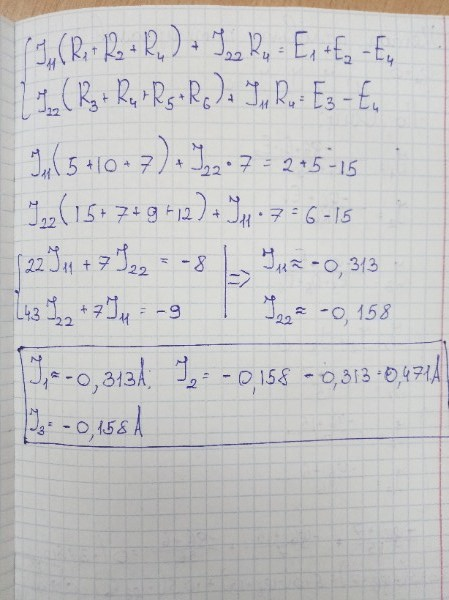 J₁₁(R₁+R₂+R₄) + J₂₂R₄ = E₁+E₂-E₄
J₂₂(R₃+R₄+R₅+R₆)+ J₁₁R₄=E₃-E₄
J₁₁(5+10+7)+J₂₂·7 = 2+5-15
J₂₂(15+7+9+12)+J₁₁·7=6-15
22J₁₁+7J₂₂ = -8 => J₁₁≈-0,313
43J₂₂+7J₁₁ = -9 J₂₂≈ -0,158
J₁≈-0,313A. J₂= -0,158 -0,313=0,471A
J₃=-0,158A